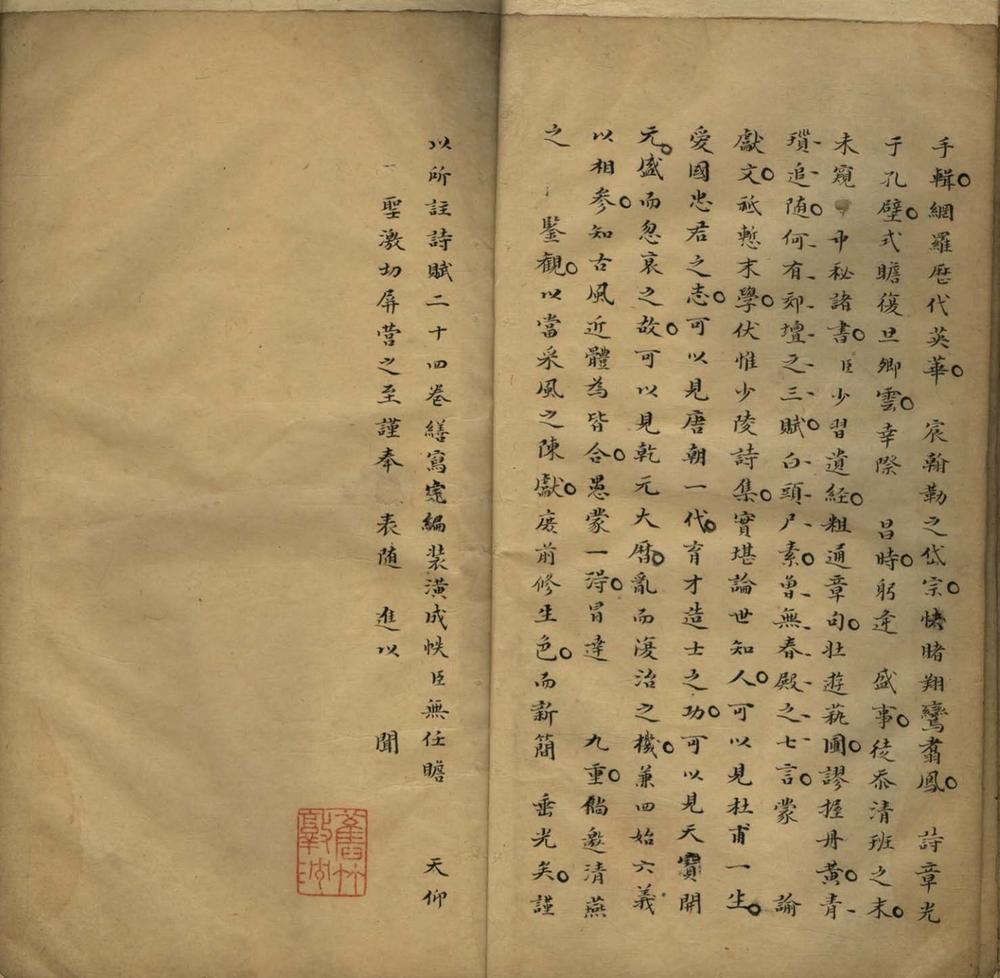 手輯網羅歷代英華 宸翰勒之岱宗快睹翔鸞翥鳳 詩章光
于孔壁式瞻復旦卿雲幸際 昌時躬逢 盛事徒忝清班之末
未窺中秘諸書臣少習遺經粗通章句壯遊蓺圃謬握丹黃青
瑣追随何有郊壇之三賦白頭尸素曾無春殿之七言蒙 諭
獻文祗慙末學伏惟少陵詩集實堪論世知人可以見杜甫一生
愛國忠君之志可以見唐朝一代育才造士之功可以見天寶開
元盛而忽衰之故可以見乾元大曆亂而復治之機兼四始六義
以相參知古風近體為皆合愚蒙一得冒達 九重倘邀清燕
之 鑒觀以當采風之陳獻庶前修生色而新簡 垂光矣謹
以所註詩賦二十四卷繕寫完編裝潢成帙臣無任瞻 天仰
聖激切屏營之至謹奉 表随 進以 聞